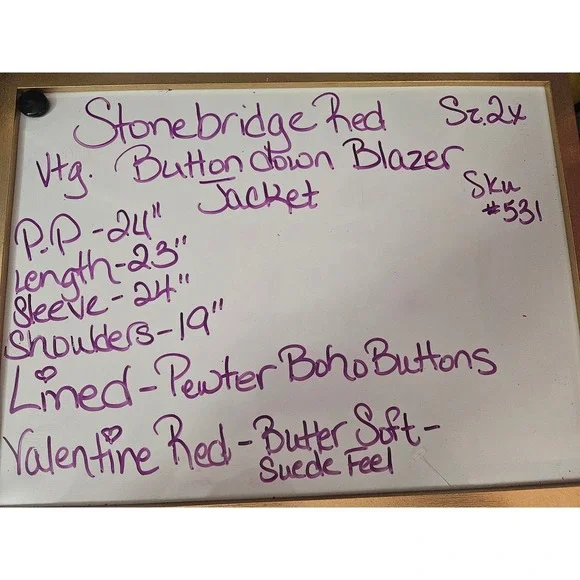 Stonebridge Red Sz. 2x
Vtg. Button down Blazer
Jacket
Sku
#531
P.P - 24"
Length - 23"
Sleeve - 24"
Shoulders - 19"
Lined - Pewter Boho Buttons
Valentine Red - Butter Soft -
Suede Feel